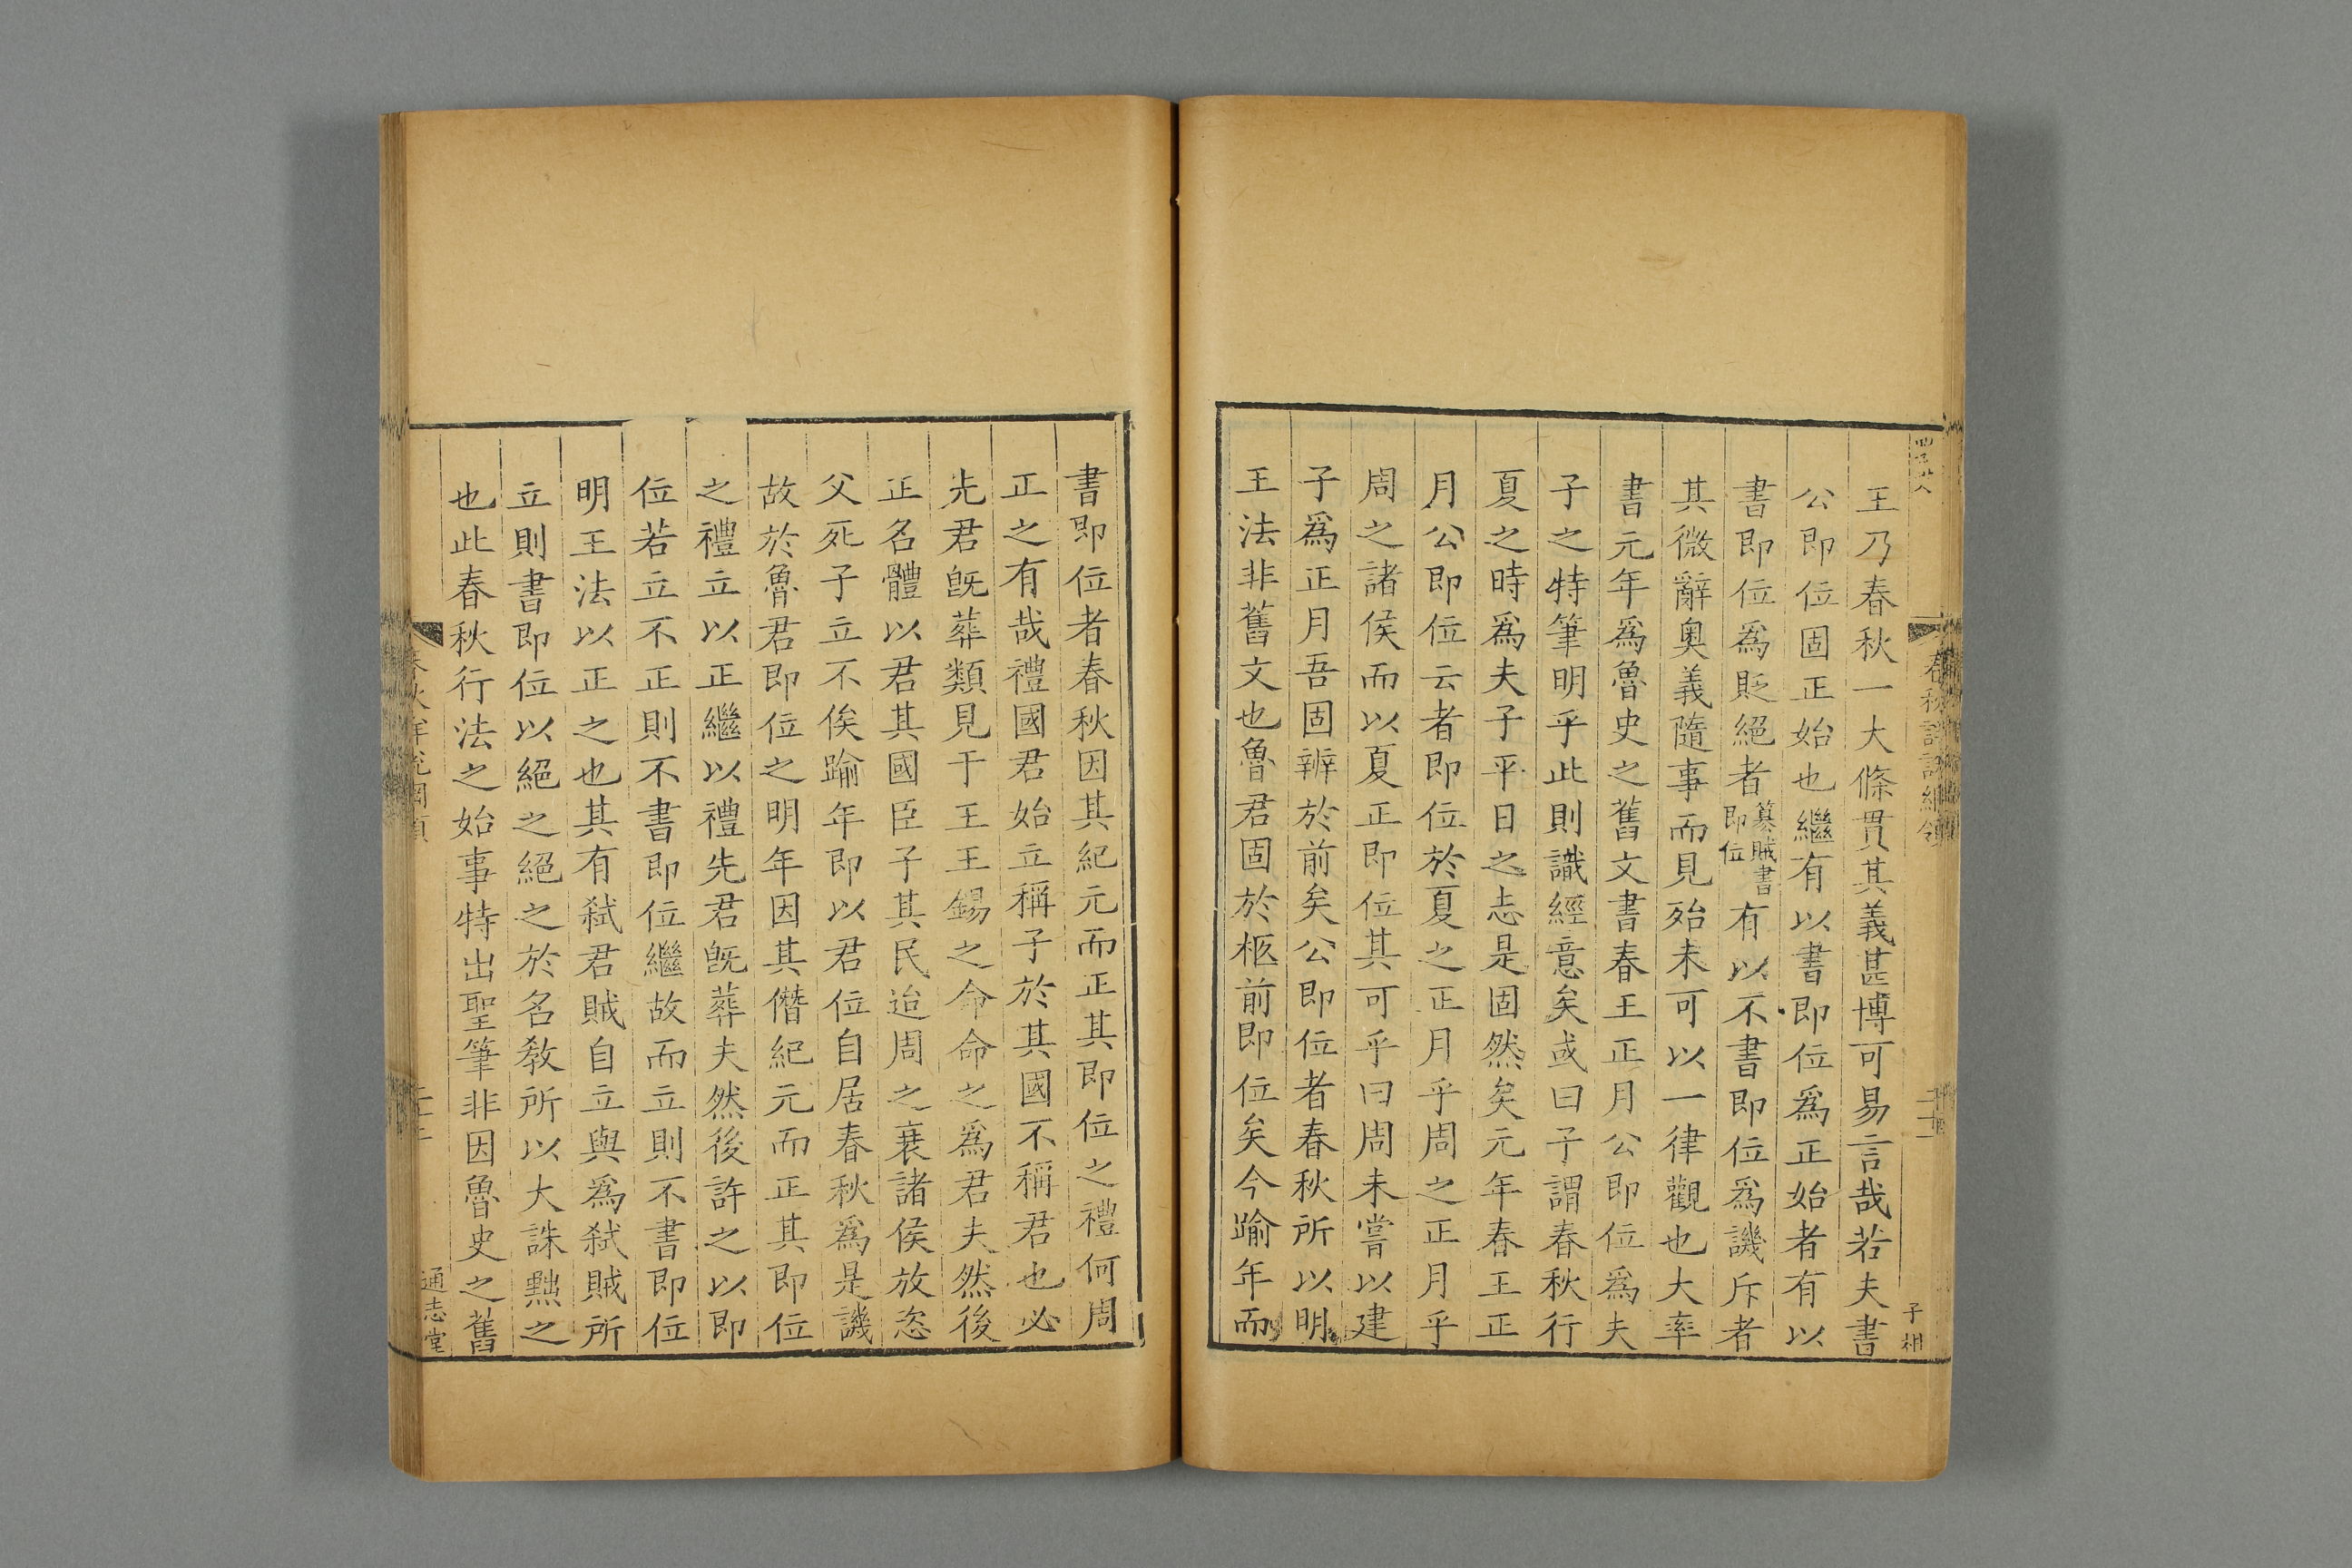 王乃春秋一大條貫其義甚博可易言哉若夫書
公即位固正始也繼有以書即位爲正始者有以
書即位爲貶絕者篡賊書即位有以不書即位爲譏斥者
其微辭奥義隨事而見殆未可以一律觀也大率
書元年爲魯史之舊文書春王正月公即位爲夫
子之特筆明乎此則識經意矣或曰子謂春秋行
夏之時爲夫子平日之志是固然矣元年春王正
月公即位云者即位於夏之正月乎周之正月乎
周之諸侯而以夏正即位其可乎曰周未嘗以建
子爲正月吾固辨於前矣公即位者春秋所以明
王法非舊文也魯君固於柩前即位矣今踰年而
子相
書即位者春秋因其紀元而正其即位之禮何周
正之有哉禮國君始立稱子於其國不稱君也必
先君旣葬類見于王王錫之命命之爲君夫然後
正名體以君其國臣子其民迨周之衰諸侯放恣
父死子立不俟踰年即以君位自居春秋爲是譏
故於魯君即位之明年因其僭紀元而正其即位
之禮立以正繼以禮先君旣葬夫然後許之以即
位若立不正則不書即位繼故而立則不書即位
明王法以正之也其有弑君賊自立與爲弑賊所
立則書即位以絕之絕之於名教所以大誅黜之
也此春秋行法之始事特出聖筆非因魯史之舊
通志堂